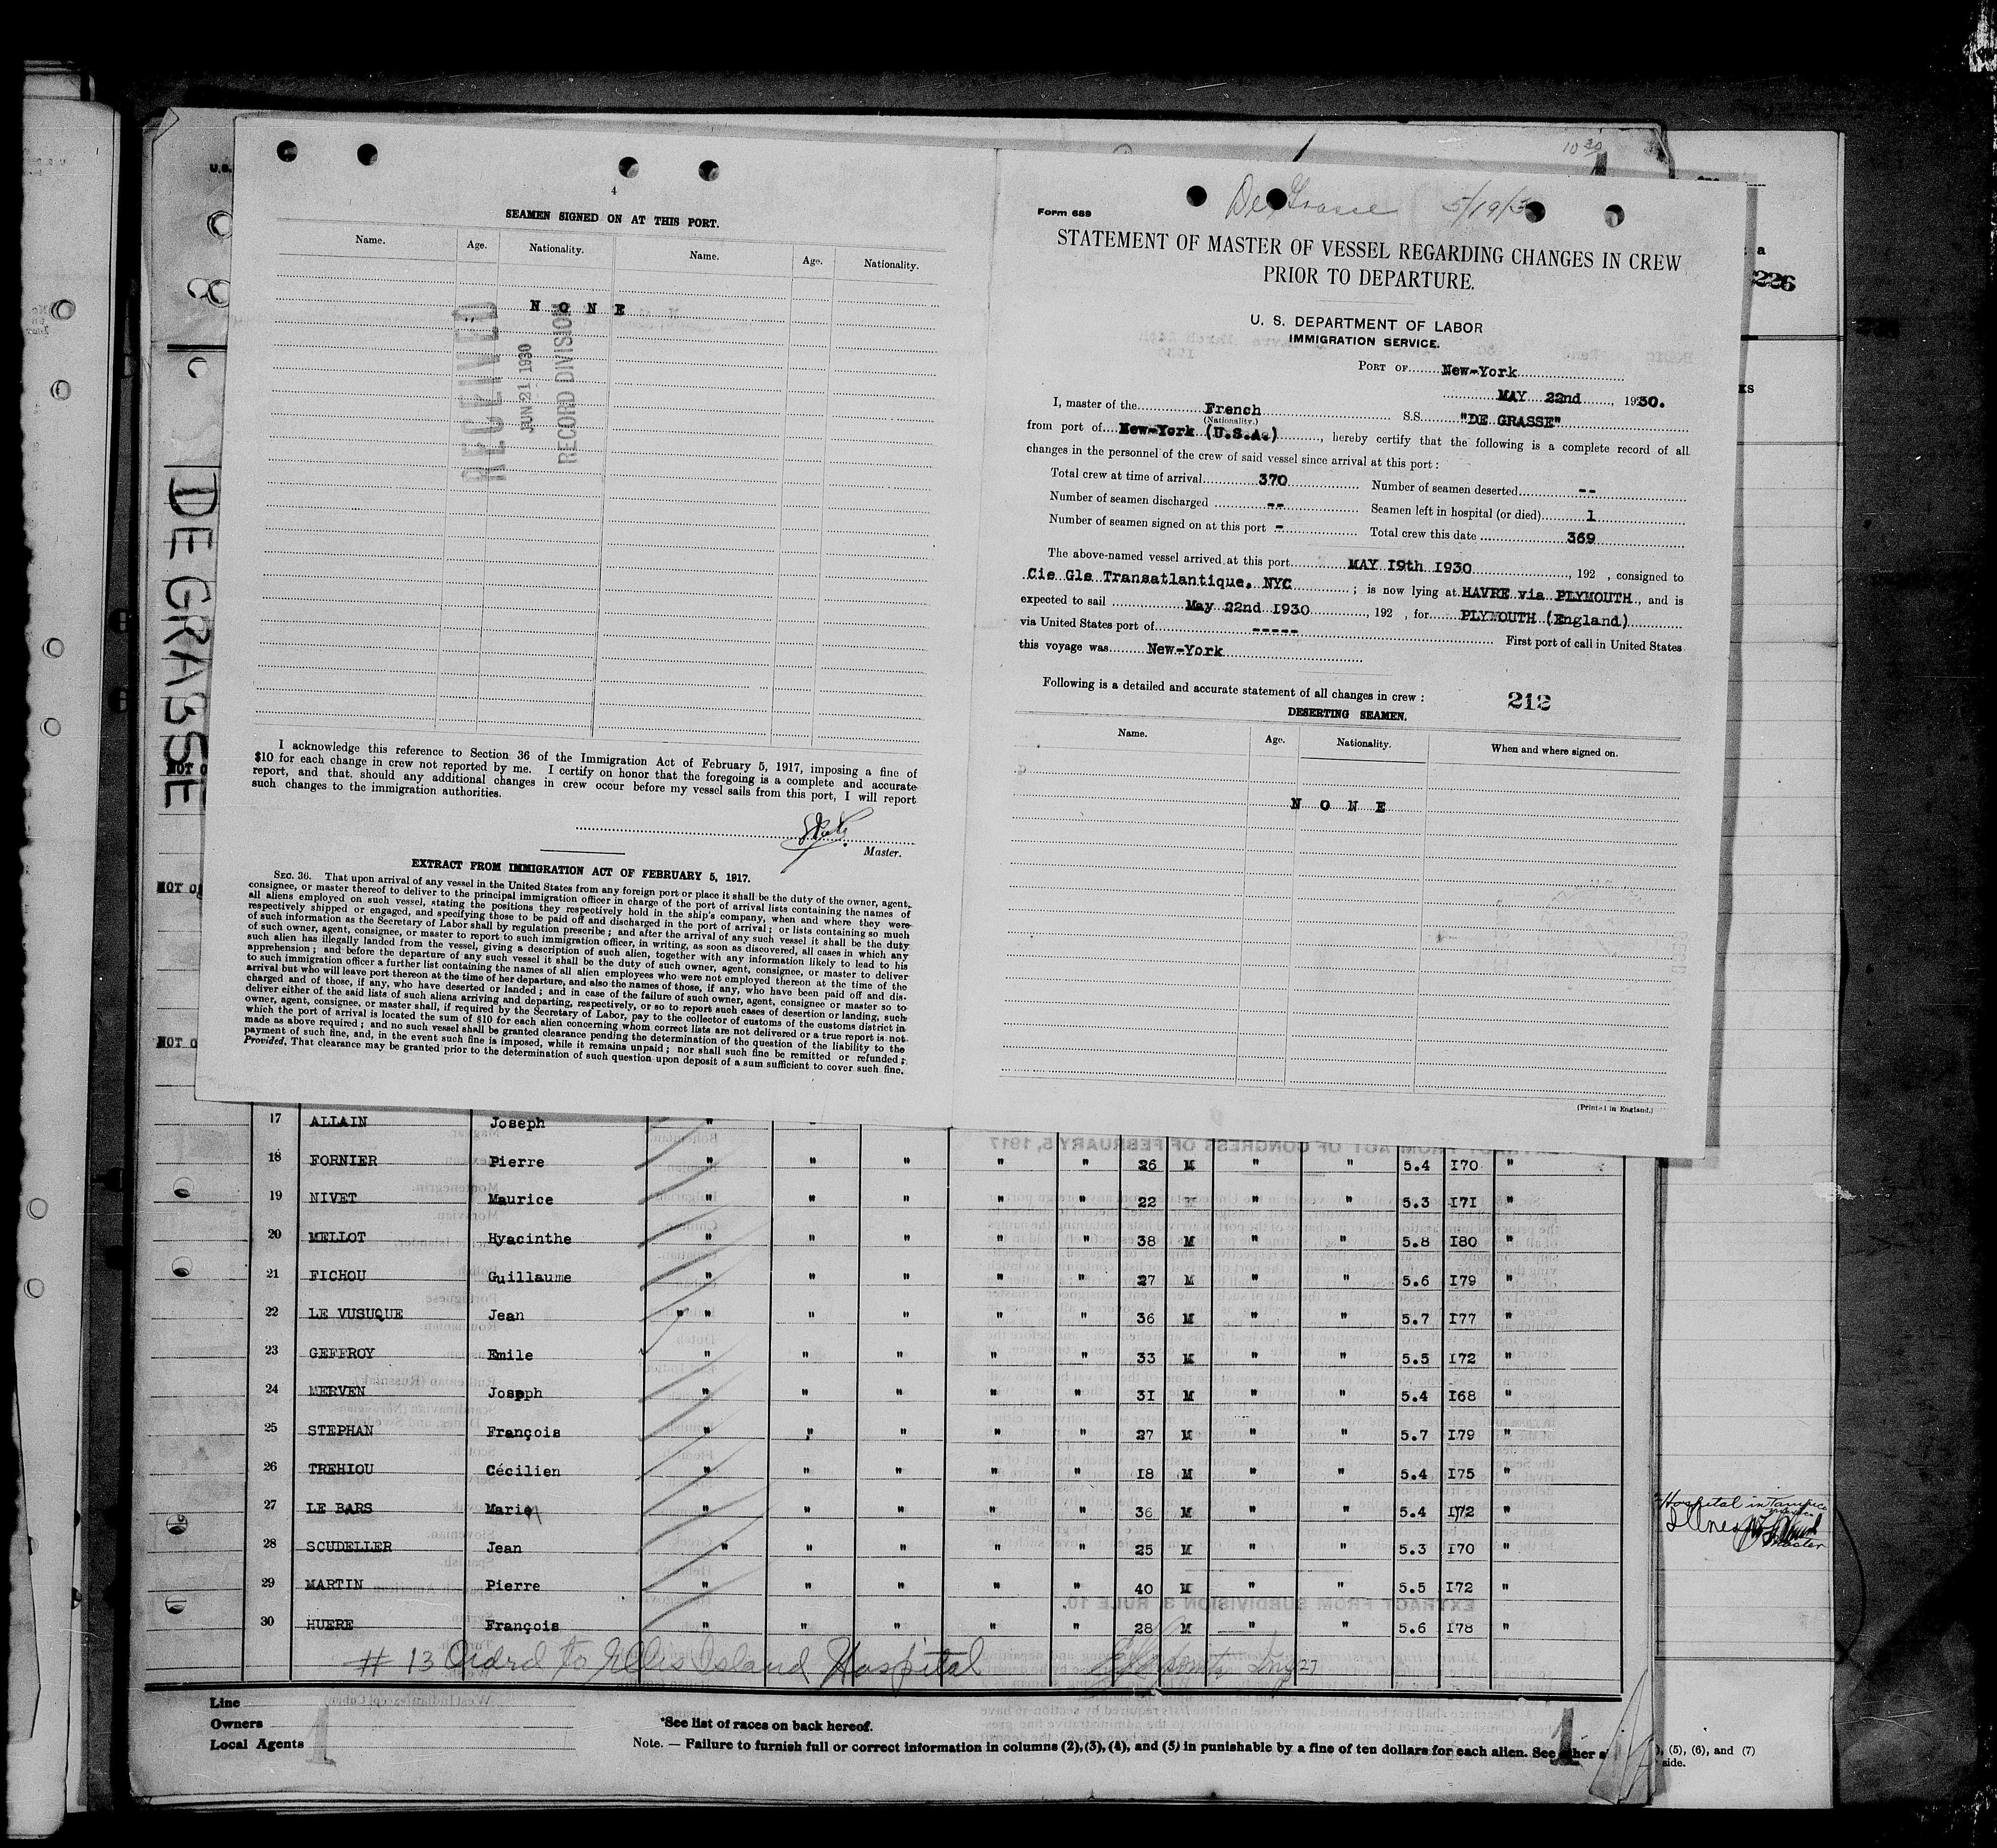 4
SEAMEN SIGNED ON AT THIS PORT.
Name. Age. Nationality. Name. Age. Nationality.
N O N E
RECEIVED
JUN 21 1930
RECORD DIVISION
I acknowledge this reference to Section 36 of the Immigration Act of February 5, 1917, imposing a fine of
$10 for each change in crew not reported by me. I certify on honor that the foregoing is a complete and accurate
report, and that, should any additional changes in crew occur before my vessel sails from this port, I will report
such changes to the immigration authorities.
Master.
EXTRACT FROM IMMIGRATION ACT OF FEBRUARY 5, 1917.
SEC. 36. That upon arrival of any vessel in the United States from any foreign port or place it shall be the duty of the owner, agent,
consignee, or master thereof to deliver to the principal immigration officer in charge of the port of arrival lists containing the names of
all aliens employed on such vessel, stating the positions they respectively hold in the ship's company, when and where they were
respectively shipped or engaged, and specifying those to be paid off and discharged in the port of arrival; or lists containing so much
of such information as the Secretary of Labor shall by regulation prescribe; and after the arrival of any such vessel it shall be the duty
of such owner, agent, consignee, or master to report to such immigration officer, in writing, as soon as discovered, all cases in which any
such alien has illegally landed from the vessel, giving a description of such alien, together with any information likely to lead to his
apprehension; and before the departure of any such vessel it shall be the duty of such owner, agent, consignee, or master to deliver
to such immigration officer a further list containing the names of all alien employees who were not employed thereon at the time of the
arrival but who will leave port thereon at the time of her departure, and also the names of those, if any, who have been paid off and dis-
charged and of those, if any, who have deserted or landed; and in case of the failure of such owner, agent, consignee or master so to
deliver either of the said lists of such aliens arriving and departing, respectively, or so to report such cases of desertion or landing, such
owner, agent, consignee, or master shall, if required by the Secretary of Labor, pay to the collector of customs of the customs district in
which the port of arrival is located the sum of $10 for each alien concerning whom correct lists are not delivered or a true report is not
made as above required; and no such vessel shall be granted clearance pending the determination of the question of the liability to the
payment of such fine, and, in the event such fine is imposed, while it remains unpaid; nor shall such fine be remitted or refunded;
Provided, That clearance may be granted prior to the determination of such question upon deposit of a sum sufficient to cover such fine.
10 30
De Grasse 5/19/3
Form 689
STATEMENT OF MASTER OF VESSEL REGARDING CHANGES IN CREW
PRIOR TO DEPARTURE.
U. S. DEPARTMENT OF LABOR
IMMIGRATION SERVICE.
PORT OF New-York
MAY 22nd, 1930.
I, master of the French S.S. "DE GRASSE"
(Nationality.)
from port of New-York (U.S.A.), hereby certify that the following is a complete record of all
changes in the personnel of the crew of said vessel since arrival at this port:
Total crew at time of arrival 370 Number of seamen deserted --
Number of seamen discharged -- Seamen left in hospital (or died) 1
Number of seamen signed on at this port - Total crew this date 369
The above-named vessel arrived at this port MAY 19th 1930, 192 , consigned to
Cie Gle Transatlantique. NYC; is now lying at HAVRE via PLYMOUTH, and is
expected to sail May 22nd 1930, 192 , for PLYMOUTH (England)
via United States port of ----- First port of call in United States
this voyage was New-York
Following is a detailed and accurate statement of all changes in crew:
212
DESERTING SEAMEN.
Name. Age. Nationality. When and where signed on.
N O N E
(Printed in England.)
DE GRASSE
U.S.
NOT O
NOT O
NOT O
a
226
KS
17 ALLAIN Joseph "
18 FORNIER Pierre " " " " " 26 M " " 5.4 I70 "
19 NIVET Maurice " " " " " 22 M " " 5.3 I7I "
20 MELLOT Hyacinthe " " " " " 38 M " " 5.8 I80 "
21 FICHOU Guillaume " " " " " 27 M " " 5.6 I79 "
22 LE VUSUQUE Jean " " " " " " 36 M " " 5.7 I77 "
23 GEFFROY Emile " " " " " 33 M " " 5.5 I72 "
24 MERVEN Joseph " " " " " 3I M " " 5.4 I68 "
25 STEPHAN François " " " " " 27 M " " 5.7 I79 "
26 TREHIOU Cécilien " " " " " I8 M " " 5.4 I75 "
27 LE BARS Marie " " " " " 36 M " " 5.4 I72 "
28 SCUDELLER Jean " " " " " 25 M " " 5.3 I70 "
29 MARTIN Pierre " " " " " 40 M " " 5.5 I72 "
30 HUERE François " " " " " 28 M " " 5.6 I78 "
# 13 Ordrd to Ellis Island Hospital
Hospital in Tampico
Illness
master
Line
Owners
Local Agents
1
*See list of races on back hereof.
Note. — Failure to furnish full or correct information in columns (2),(3),(4), and (5) in punishable by a fine of ten dollars for each alien. See other s
1
), (5), (6), and (7)
side.